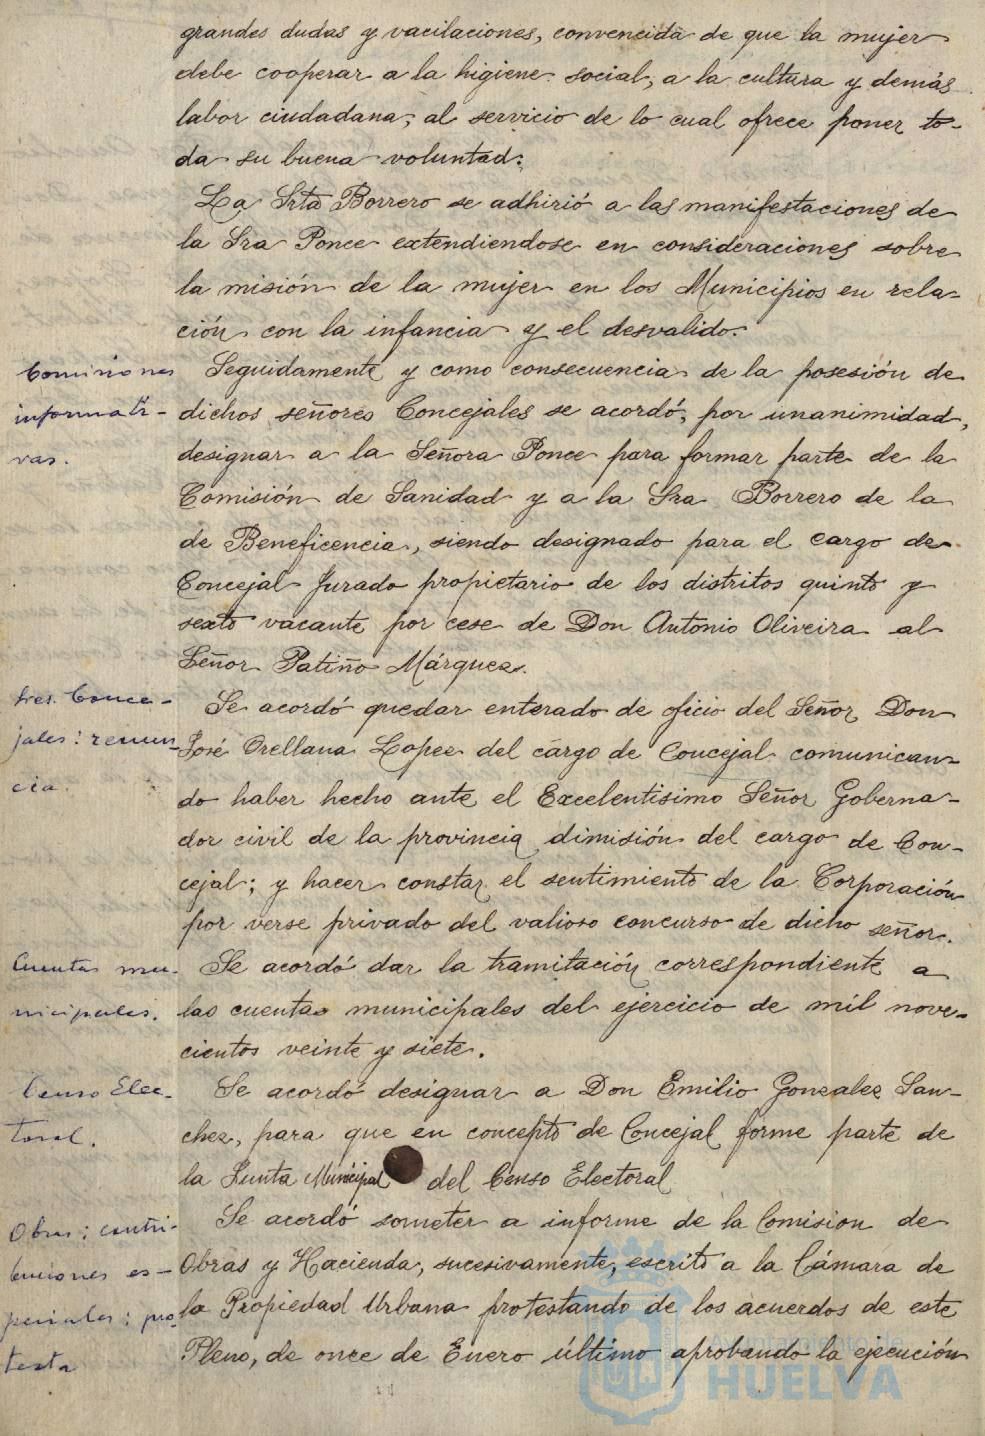 grandes dudas y vacilaciones, convencida de que la mujer
debe cooperar a la higiene social, a la cultura y demás
labor ciudadana, al servicio de lo cual ofrece poner to-
da su buena voluntad.
La Srta Borrero se adhirió a las manifestaciones de
la Sra Ponce extendiendose en consideraciones sobre
la misión de la mujer en los Municipios en rela-
ción con la infancia y el desvalido.
Comisiones
informati-
vas.
Seguidamente y como consecuencia de la posesión de
dichos señores Concejales se acordó, por unanimidad,
designar a la Señora Ponce para formar parte de la
Comisión de Sanidad y a la Sra Borrero de la
de Beneficencia, siendo designado para el cargo de
Concejal Jurado propietario de los distritos quinto y
sexto vacante por cese de Don Antonio Oliveira al
Señor Patiño Márquez.
Sres. Conce-
jales: renun-
cia.
Se acordó quedar enterado de oficio del Señor Don
José Orellana Lopez del cargo de Concejal comunican-
do haber hecho ante el Excelentisimo Señor Goberna-
dor civil de la provincia dimisión del cargo de Con-
cejal; y hacer constar el sentimiento de la Corporación
por verse privado del valioso concurso de dicho señor.
Cuentas mu-
nicipales.
Se acordó dar la tramitación correspondiente a
las cuentas municipales del ejercicio de mil nove-
cientos veinte y siete.
Censo Elec-
toral.
Se acordó designar a Don Emilio Gonzalez San-
chez, para que en concepto de Concejal forme parte de
la Junta Municipal del Censo Electoral
Obras; contri-
buciones es-
peciales; pro-
testa
Se acordó someter a informe de la Comision de
Obras y Hacienda, sucesivamente, escrito a la Cámara de
la Propiedad Urbana protestando de los acuerdos de este
Pleno, de once de Enero último aprobando la ejecución
Ayuntamiento de
HUELVA